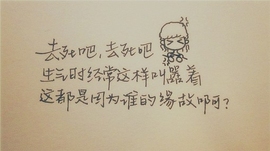 去死吧，去死吧
生气时经常这样叫嚣着
这都是因为谁的缘故啊可？